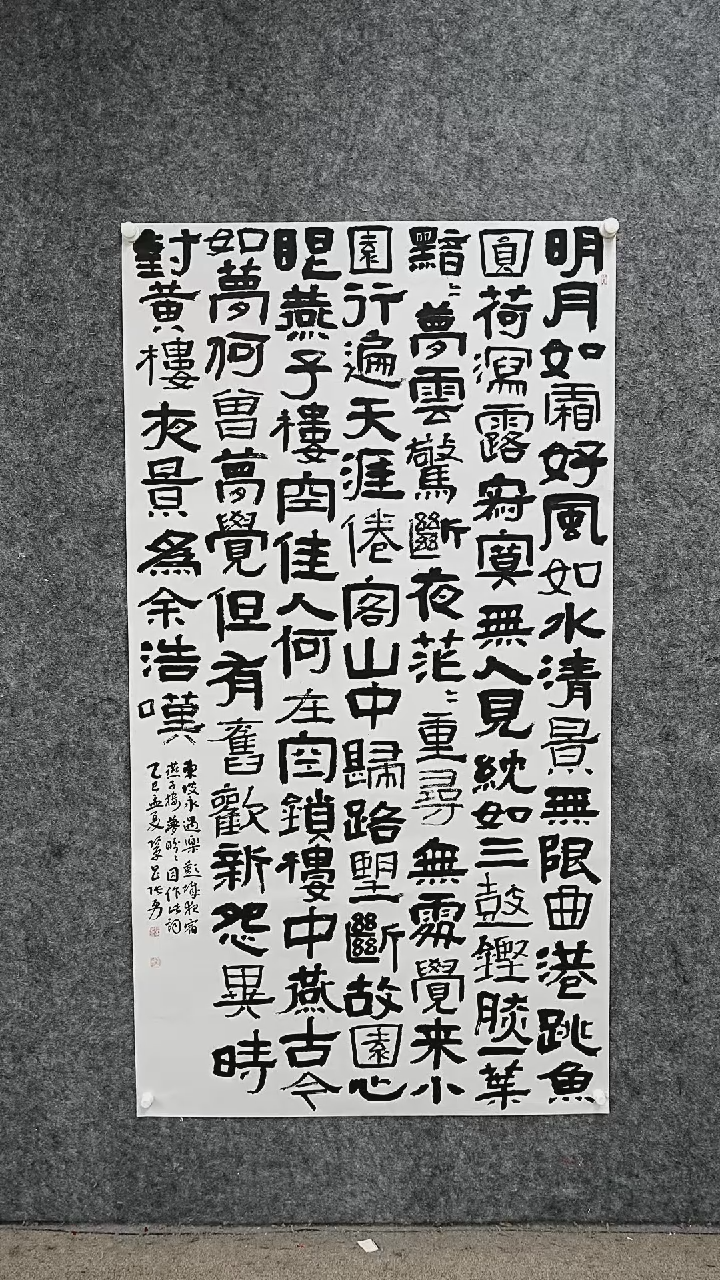 明月如霜好風如水清景無限曲港跳魚
圓荷瀉露寂寞無人見紞如三鼓鏗然一葉
黯〻夢雲驚斷夜茫〻重尋無處覺来小
園行遍天涯倦客山中歸路望斷故園心
眼燕子樓空佳人何在空鎖樓中燕古今
如夢何曾夢覺但有舊歡新怨異時
對黄樓夜景為余浩嘆
東坡永遇樂彭城夜宿
燕子樓夢盼〻因作此詞
乙巳孟夏